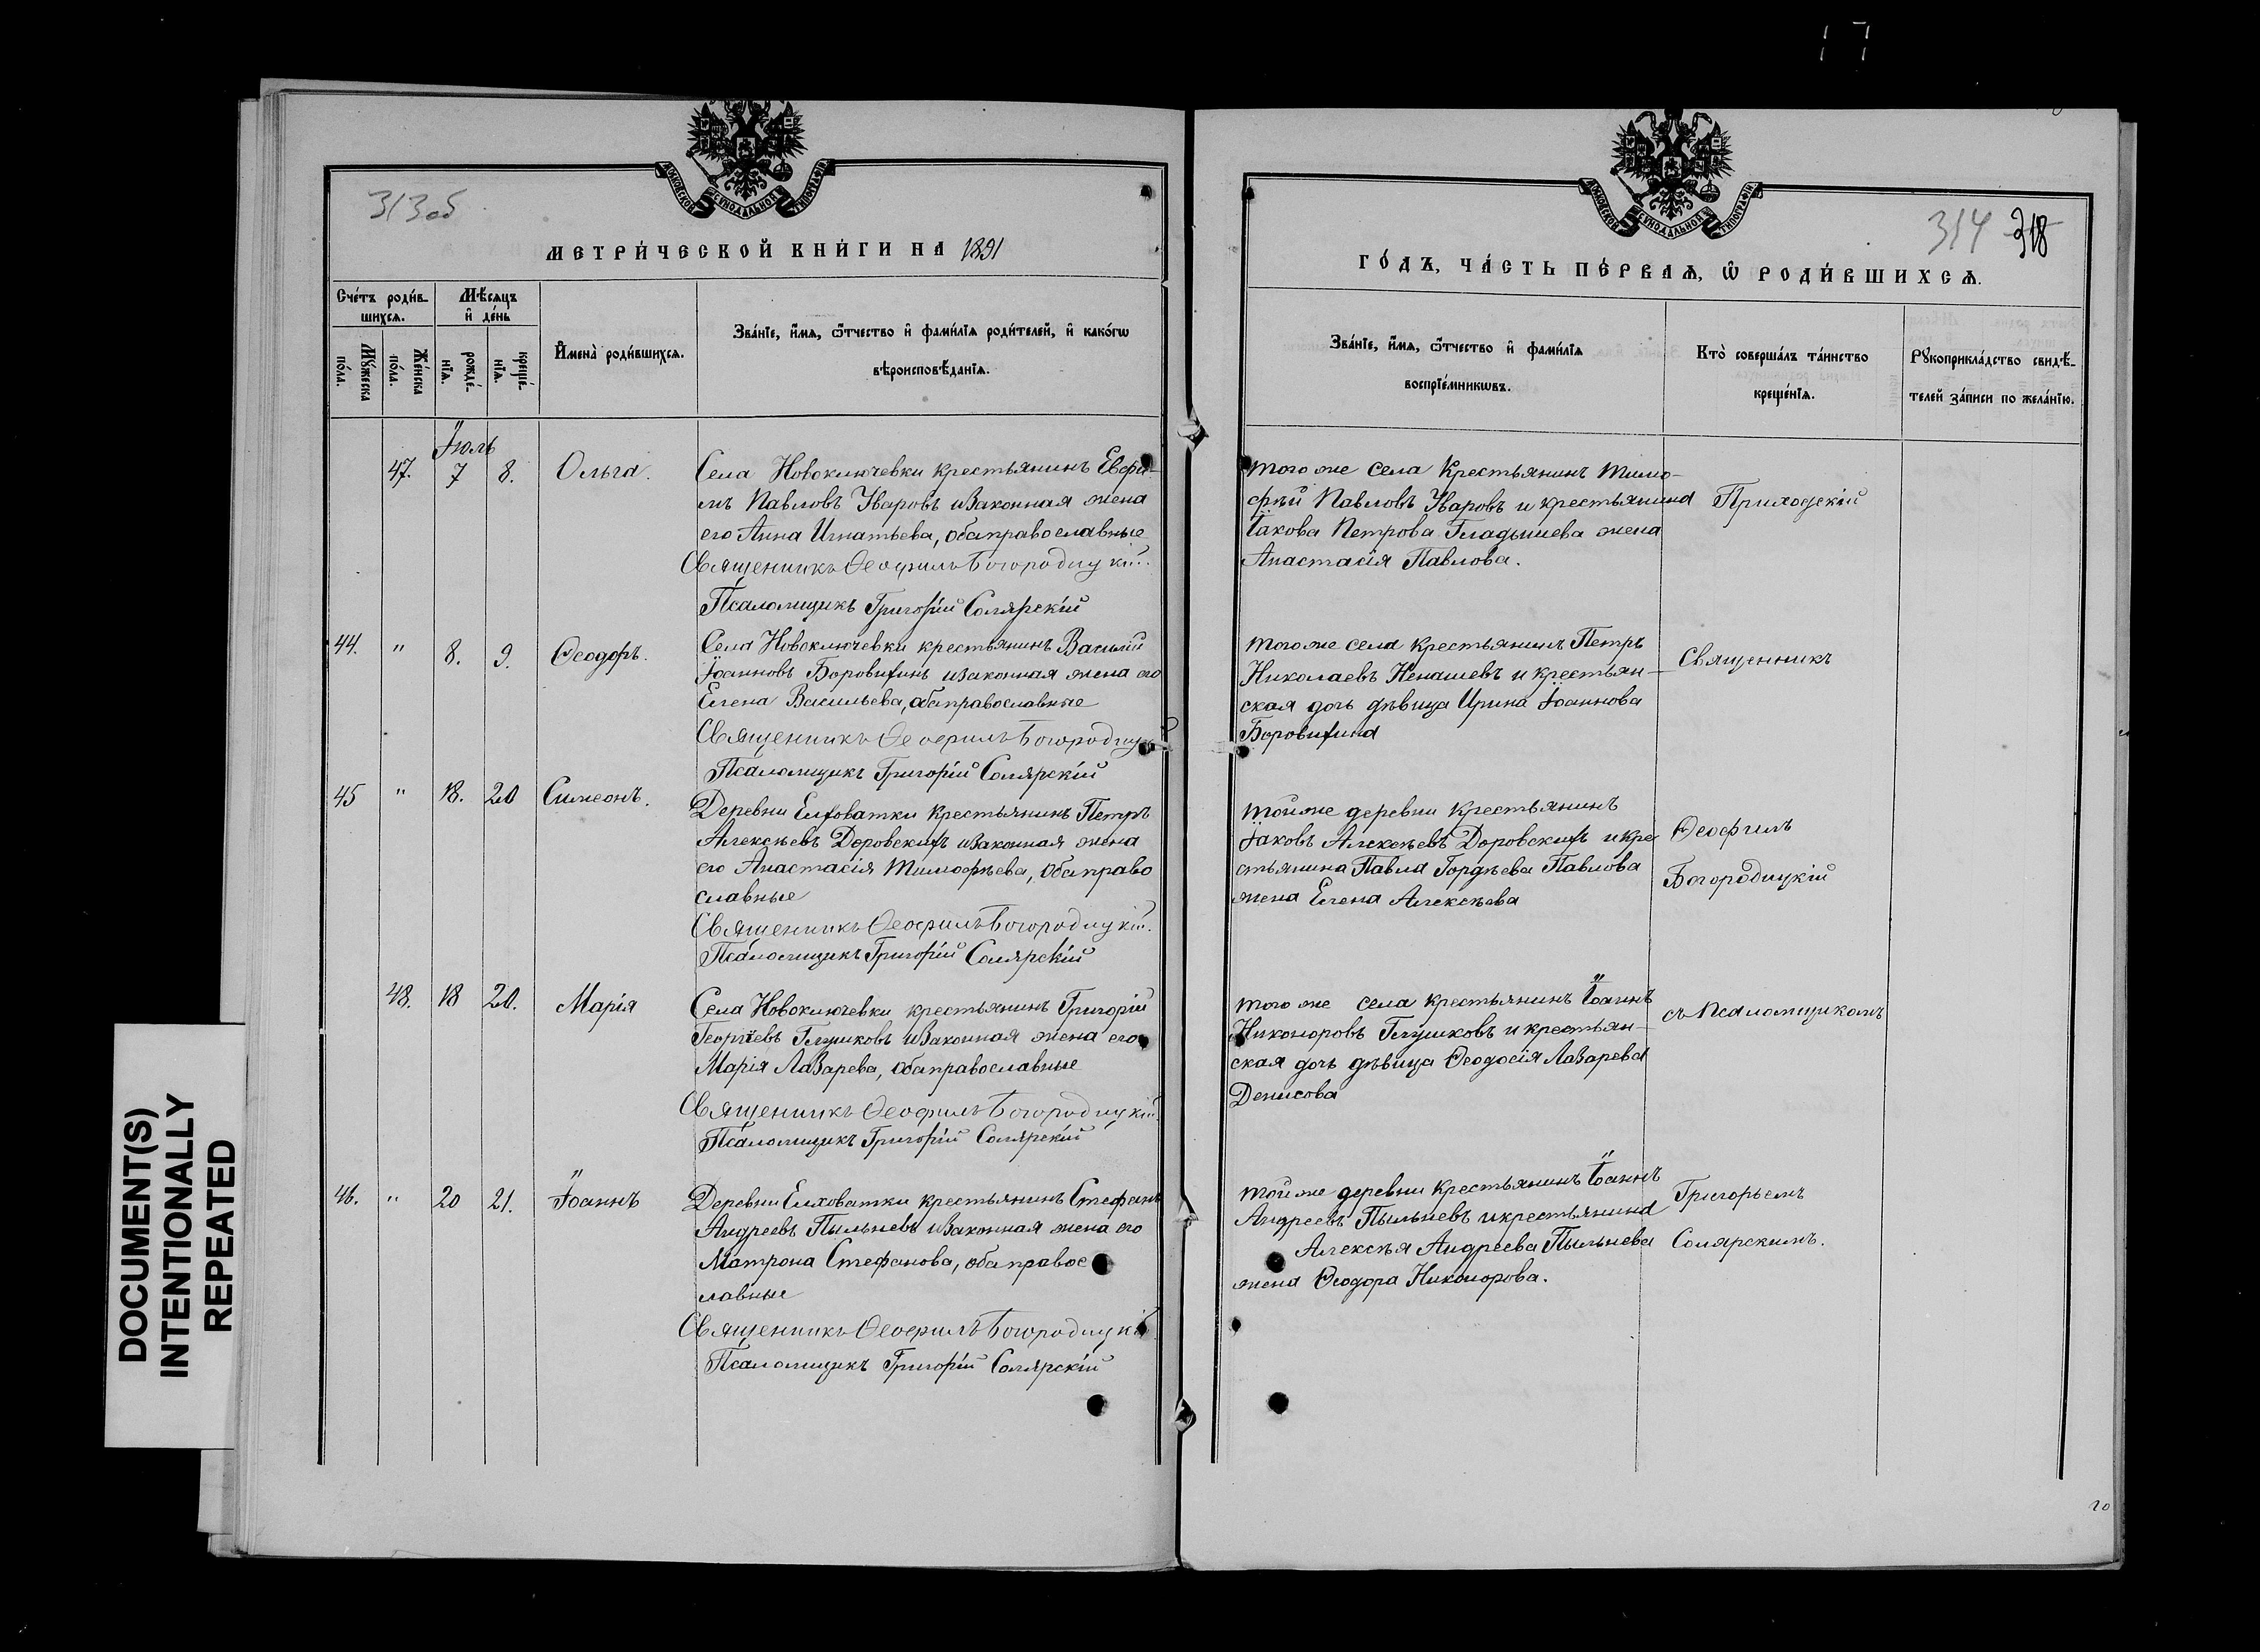 313об
МОСКОВСКОЙ СѴНОДАЛЬНОЙ ТИПОГРАФІИ
МЕТРИ́ЧЕСКОЙ КНИ́ГИ НА 1891
Сче́тъ роди́в-
шихсѧ.
Мѣ́сѧцъ
и҆ де́нь
И҆мена̀ роди́вшихсѧ.
Зва́нїе, и҆́мѧ, ѻ҆́тчество и҆ фами́лїѧ роди́телей, и҆ како́гѡ
вѣроисповѣ́данїѧ.
Мꙋ́жеска
по́ла.
Же́нска
по́ла.
рожде́-
нїѧ.
креще́-
нїѧ.
Іюль
47. 7 8. Ольга.
Села Новоключевки крестьянинъ Евфи-
мъ Павловъ Уваровъ и законная жена
его Анна Игнатьева, оба православные
Священникъ Ѳеофилъ Богородицкій.
Псаломщикъ Григорій Солярскій
44. " 8. 9. Ѳеодоръ.
Села Новоключевки крестьянинъ Василій
Іоанновъ Боровихинъ и законная жена его
Елена Васильева, оба православные
Священникъ Ѳеофилъ Богородицк
Псаломщикъ Григорій Солярскій
45 " 18. 20 Симеонъ.
Деревни Елховатки крестьянинъ Петръ
Алексѣевъ Доровскихъ и законная жена
его Анастасія Тимофѣева, оба право
славные
Священникъ Ѳеофилъ Богородицкій.
Псаломщикъ Григорій Солярскій
48. 18 20. Марія
Села Новоключевки крестьянинъ Григорій
Георгіевъ Глушковъ и законная жена его
Марія Лазарева, оба православные
Священникъ Ѳеофилъ Богородицкій.
Псаломщикъ Григорій Солярскій
46. " 20 21. Іоаннъ
Деревни Елховатки крестьянинъ Стефанъ
Андреевъ Пыльневъ и законная жена его
Матрона Стефанова, оба правос
лавные
Священникъ Ѳеофилъ Богородицкій
Псаломщикъ Григорій Солярскій
314 318
МОСКОВСКОЙ СѴНОДАЛЬНОЙ ТИПОГРАФІИ
ГО́ДЪ, ЧА́СТЬ ПЕ́РВАѦ, Ѡ҆ РОДИ́ВШИХСѦ.
Зва́нїе, и҆́мѧ, ѻ҆́тчество и҆ фами́лїѧ
воспрїе́мникѡвъ.
Кто̀ соверша́лъ та́инство
креще́нїѧ.
Рꙋкоприкла́дство свидѣ́-
телей за́писи по жела́нїю.
того же села крестьянинъ Тимо-
фѣй Павловъ Уваровъ и крестьянина
Іакова Петрова Гладышева жена
Анастасія Павлова.
Приходскій
того же села крестьянинъ Петръ
Николаевъ Ненашевъ и крестьян-
ская дочь дѣвица Ирина Іоаннова
Боровихина
Священникъ
той же деревни крестьянинъ
Іаковъ Алексѣевъ Доровскихъ и кре
стьянина Павла Гордѣева Павлова
жена Елена Алексѣева
Ѳеофилъ
Богородицкій
того же села крестьянинъ Іоаннъ
Никоноровъ Глушковъ и крестьян-
ская дочь дѣвица Ѳеодосія Лазарева
Денисова
съ Псаломщикомъ
той же деревни крестьянинъ Іоаннъ
Андреевъ Пыльневъ и крестьянина
Алексѣя Андреева Пыльнева
жена Ѳеодора Никонорова.
Григорьемъ
Солярскимъ.
DOCUMENT(S)
INTENTIONALLY
REPEATED